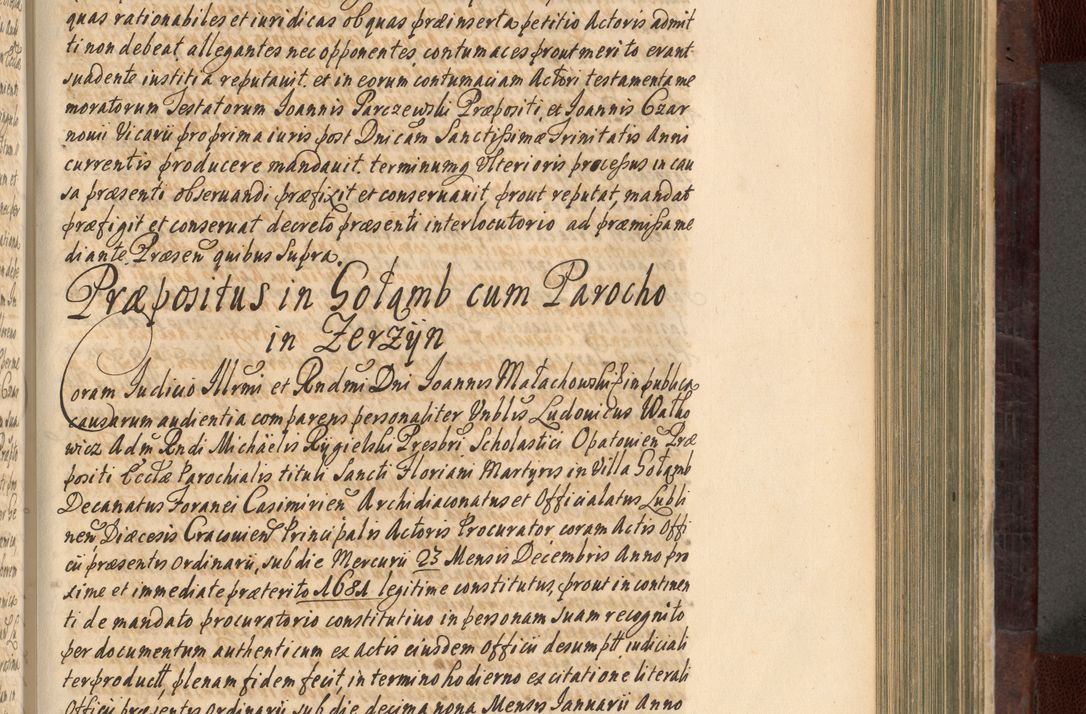 quas rationabiles et iuridicas ob quas præinserta petitio Actoris admit
ti non debeat allegantes nec opponentes contumaces prout merito erant
suadente iustitia reputauit. et in eorum contumaciam Actori testamenta me
moratorum Testatorum Ioannis Parczewski Præpositi, et Ioannis Czar
nowii Vicarii pro prima iuris post Dnicam Sanctissimæ Trinitatis Anni
currentis producere mandauit. terminumq Vlterioris processus in cau
sa præsenti obseruandi præfixit et conseruauit, prout reputat, mandat
præfigit et conseruat decreto præsenti interlocutorio ad præmissa me
diante. Præsen quibus supra.
Præpositus in Gołąmb cum Parocho
in Zerzÿn
Coram Iudicio Illrmi et Rndmi Dni Ioannis Małachowski in publica
causarum audientia comparens personaliter Vnblis Ludouicus Watko
wicz Adm Rndi Michaëlis Rygielski Presbri Scholastici Opatouien Præ
positi Ecclæ Parochialis tituli Sancti Floriani Martyris in Villa Gołąmb
Decanatus Foranei Casimirien Archidiaconatus et Officialatus Lubli
nen Diæcesis Cracouien Principalis Actoris Procurator coram Actis Offi
cii præsentis ordinarii, sub die Mercurii 23 Mensis Decembris Anno pro
xime et immediate præterito 1681 legitime constitutus, prout in continen
ti de mandato procuratorio constitutiuo in personam suam recognito
per documentum authenticum ex actis eiusdem officii desumptt iudiciali
ter productt, plenam fidem fecit, in termino hodierno ex citatione literali
Officii præsentis ordinarii sub die decima nona Mensis Ianuarii Anno